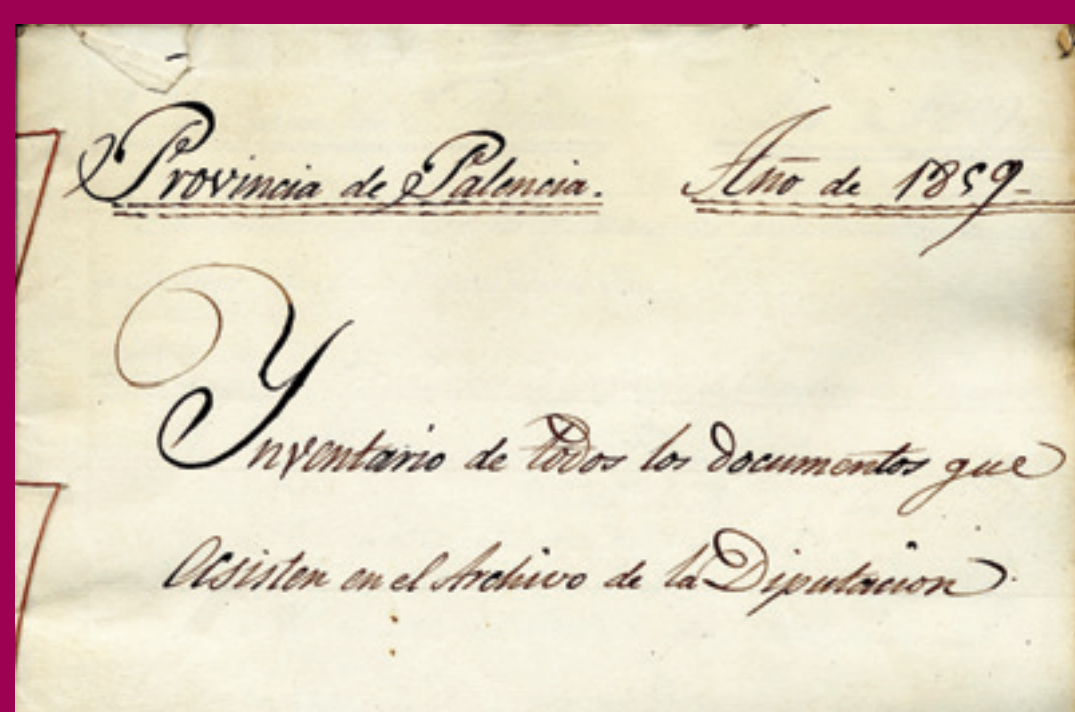 Provincia de Palencia. Año de 1859-
Ynventario de todos los documentos que
ecsisten en el Archivo de la Diputacion.